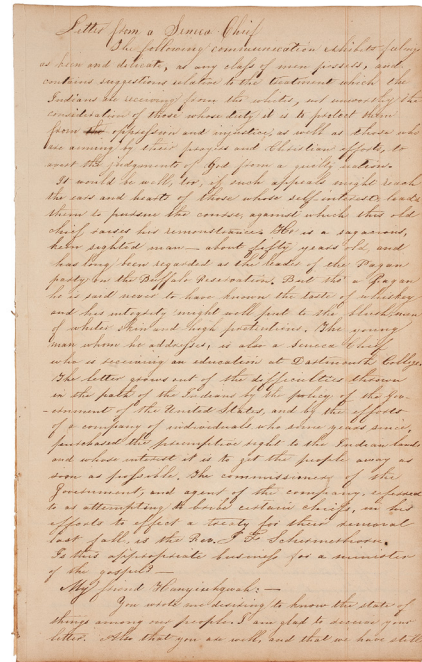 Letter from a Seneca Chief
The following communication exhibits feelings
as keen and delicate, as any class of men possess, and
contains suggestions relative to the treatment which the
Indians are receiving from the whites, not unworthy the
consideration of those whose duty it is to protect them
from the oppression and injustice, as well as those who
are aiming by their prayers and Christian efforts, to
avert the judgments of God from a guilty nation.
It would be well, too, if such appeals might reach
the ears and hearts of those whose self interest leads
them to pursue the course, against which this old
chief raises his remonstrance. He is a sagacious,
keen sighted man — about fifty years old, and
has long been regarded as the leader of the Pagan
party on the Buffalo Reservation. But tho' a Pagan
he is said never to have known the taste of whiskey
and his integrity might well put to the blush, men
of whiter skin and high pretentions. The young
man whom he addresses, is also a Seneca Chief
who is receiving an education at Dartmouth College.
The letter grows out of the difficulties thrown
in the path of the Indians by the policy of the Gov-
ernment of the United States, and by the efforts
of a company of individuals who some years since,
purchased the preemption right to the Indian lands
and whose interest it is to get the people away as
soon as possible. The commissioner of the
Government, and agent of the company,
to as attempting to certain chiefs, in his
efforts to effect a treaty for their removal
last fall, is the Rev. J F Schermerhorn.
Is this appropriate business for a minister
of the gospel? —
My friend : —
You wrote me desiring to know the state of
things among our people. I am glad to receive your
letter. Also that you are well, and that we have still